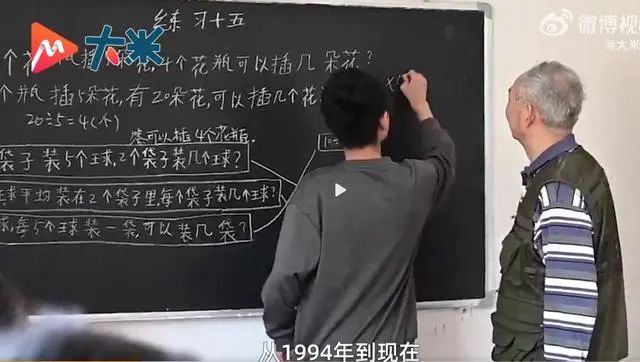 练习十五
微博视频
@大米
大米
个花瓶插5朵花,4个花瓶可以插几朵花?
个瓶插5朵花,有20朵花,可以插几个花
20÷5=4(个)
答可以插4个花瓶.
袋子装5个王球,2个袋子装几个王球?
王球平均装在2个袋子里,每个袋子装几个王球?
球,每5个王球装一袋,可以装几袋?
从1994年到现在